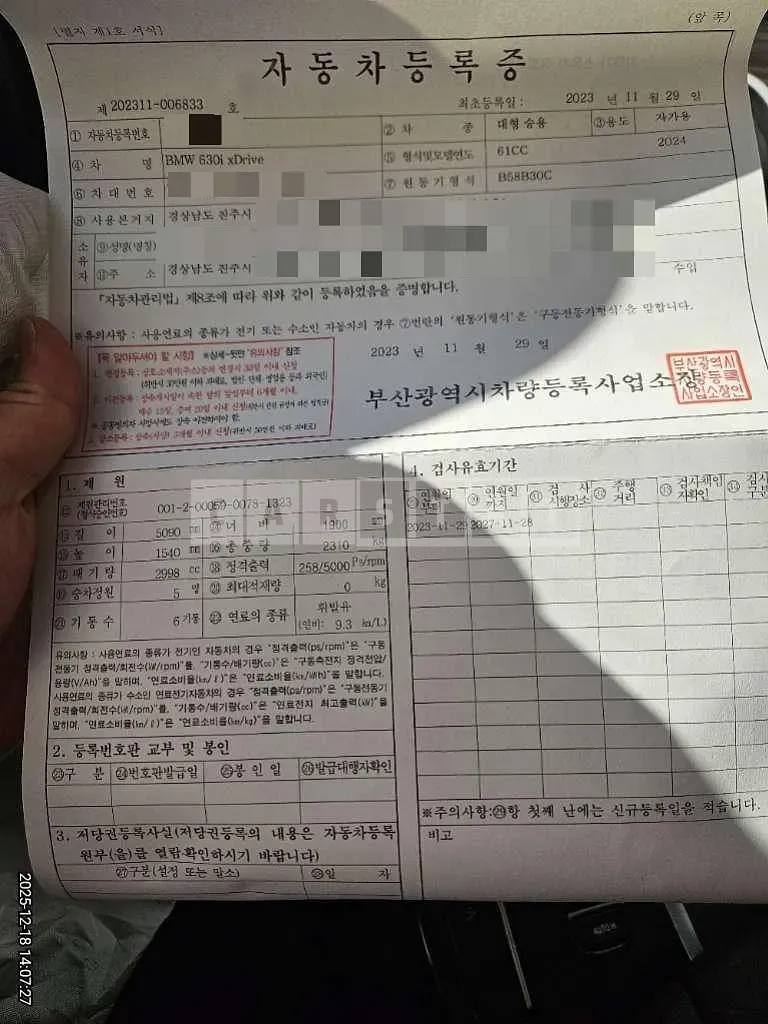 [별지 제1호 서식]
(앞 쪽)
자동차등록증
제 202311-006833 호
최초등록일 : 2023 년 11 월 29 일
① 자동차등록번호
② 차 종 대형 승용
③용도 자가용
④ 차 명 BMW 630i xDrive
⑤ 형식및모델연도 61CC 2024
⑥ 차대번호
⑦ 원동기형식 B58B30C
⑧ 사용본거지 경상남도 진주시
소유자
⑨성명(명칭)
⑩주 소 경상남도 진주시
수입
「자동차관리법」 제8조에 따라 위와 같이 등록하였음을 증명합니다.
※유의사항 : 사용연료의 종류가 전기 또는 수소인 자동차의 경우 ⑦번란의 '원동기형식'은 '구동전동기형식'을 말합니다.
2023 년 11 월 29 일
[꼭 알아두셔야 할 사항] ※상세-뒷면 "유의사항" 참조
부산광역시차량등록사업소장
부산광역시
차량등록
사업소장인
1. 제 원
⑪ 제원관리번호
(형식승인번호)
001-2-00059-0078-1323
⑫ 길 이 5090 mm
너 비 1900
높 이 1540 mm
⑯ 총 중 량 2310 kg
배 기 량 2998 cc
⑱ 정격출력 258/5000 Ps/rpm
⑲ 승차정원 5 명
⑳ 최대적재량 0 kg
㉑ 기 통 수 6 기통
㉒ 연료의 종류 휘발유
(연비: 9.3 km/L)
유의사항 : 사용연료의 종류가 전기인 자동차의 경우 "정격출력(ps/rpm)"은 "구동
전동기 정격출력/회전수(kW/rpm)"를, "기통수/배기량(cc)"은 "구동축전지 정격전압/
용량(V/Ah)"을 말하며, "연료소비율(km/ℓ)"은 "연료소비율(km/kWh)"을 말합니다.
사용연료의 종류가 수소인 연료전지자동차의 경우 "정격출력(ps/rpm)"은 "구동전동기
정격출력/회전수(kW/rpm)"를, "기통수/배기량(cc)"은 "연료전지 최고출력(kW)"을
말하며, "연료소비율(km/ℓ)"은 "연료소비율(km/kg)"을 말합니다.
2. 등록번호판 교부 및 봉인
㉓구 분
㉔번호판발급일
㉕봉 인 일
㉖발급대행자확인
3. 저당권등록사실(저당권등록의 내용은 자동차등록
원부(을)를 열람·확인하시기 바랍니다)
㉗구분(설정 또는 말소)
㉘일 자
4. 검사유효기간
연월일
부터
연월일
까지
검 사
시행장소
주행
거리
검사책임
자확인
2023-11-29 2027-11-28
※주의사항:㉙항 첫째 난에는 신규등록일을 적습니다.
비고
2025-12-18 14:07:27